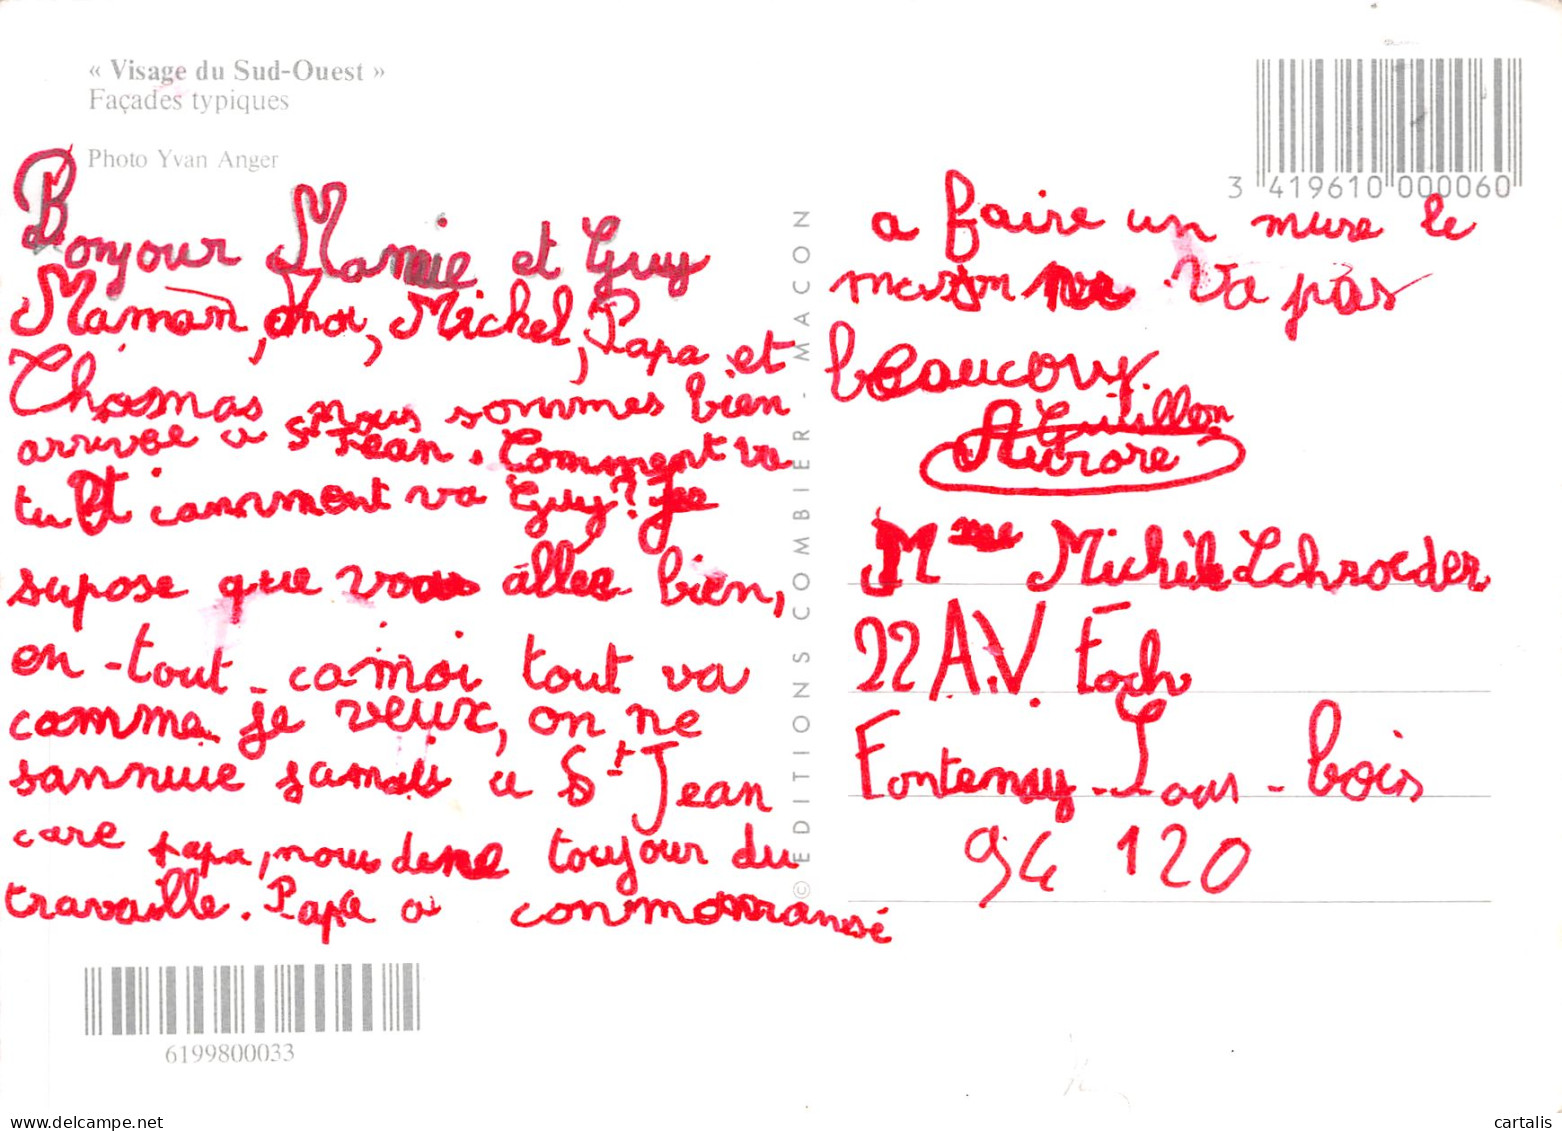 « Visage du Sud-Ouest »
Façades typiques
Photo Yvan Anger
Bonjour Mamie et Guy
Maman, moi, Michel, Papa et
Thomas nous sommes bien
arrivée a St Jean. Comment va
tu Et comment va Guy? Je
supose que vous allez bien,
en-tout-ca moi tout va
comme je veux, on ne
sannuie jamais a St Jean
care papa, nous done toujour du
travaille. Papa a conmmonransé
3 419610 000060
a faire un mure le
va pas
beaucoup.
Guitillon
Aurore
Mme Michèle Schroeder
22 A.V. Foch
Fontenay-Sous-bois
94 120
© EDITIONS COMBIER - MACON
6199800033
www.delcampe.net
cartalis